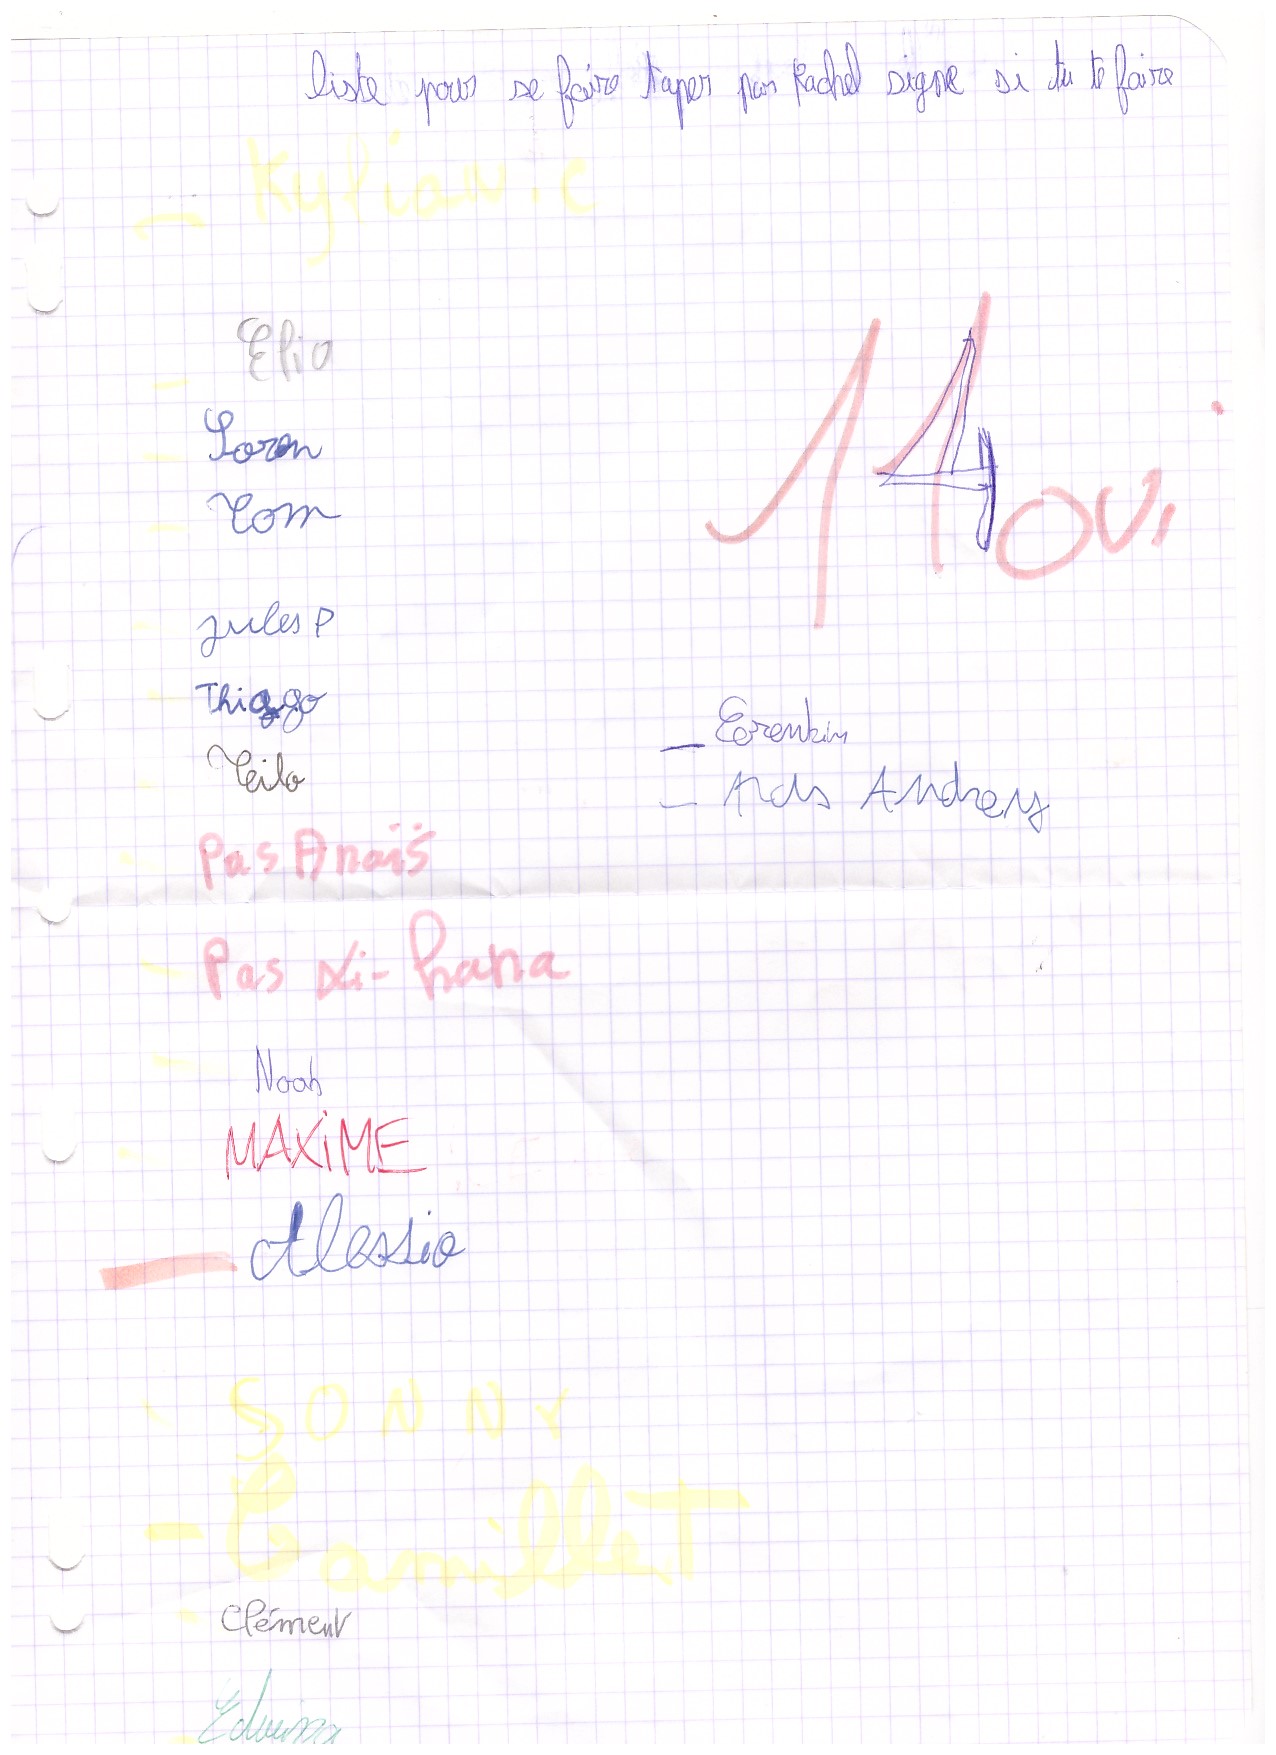 liste pour se faire taper par Rachel signe si tu te faire
Kylian.C
Elio
Loren
Tom
14 oui
jules P
Thiago
Corentin
Teilo
Andrey
Pas Anaïs
Pas Li-hana
Noah
MAXIME
Alessio
SONNY
Camille T
Clément
Edwina